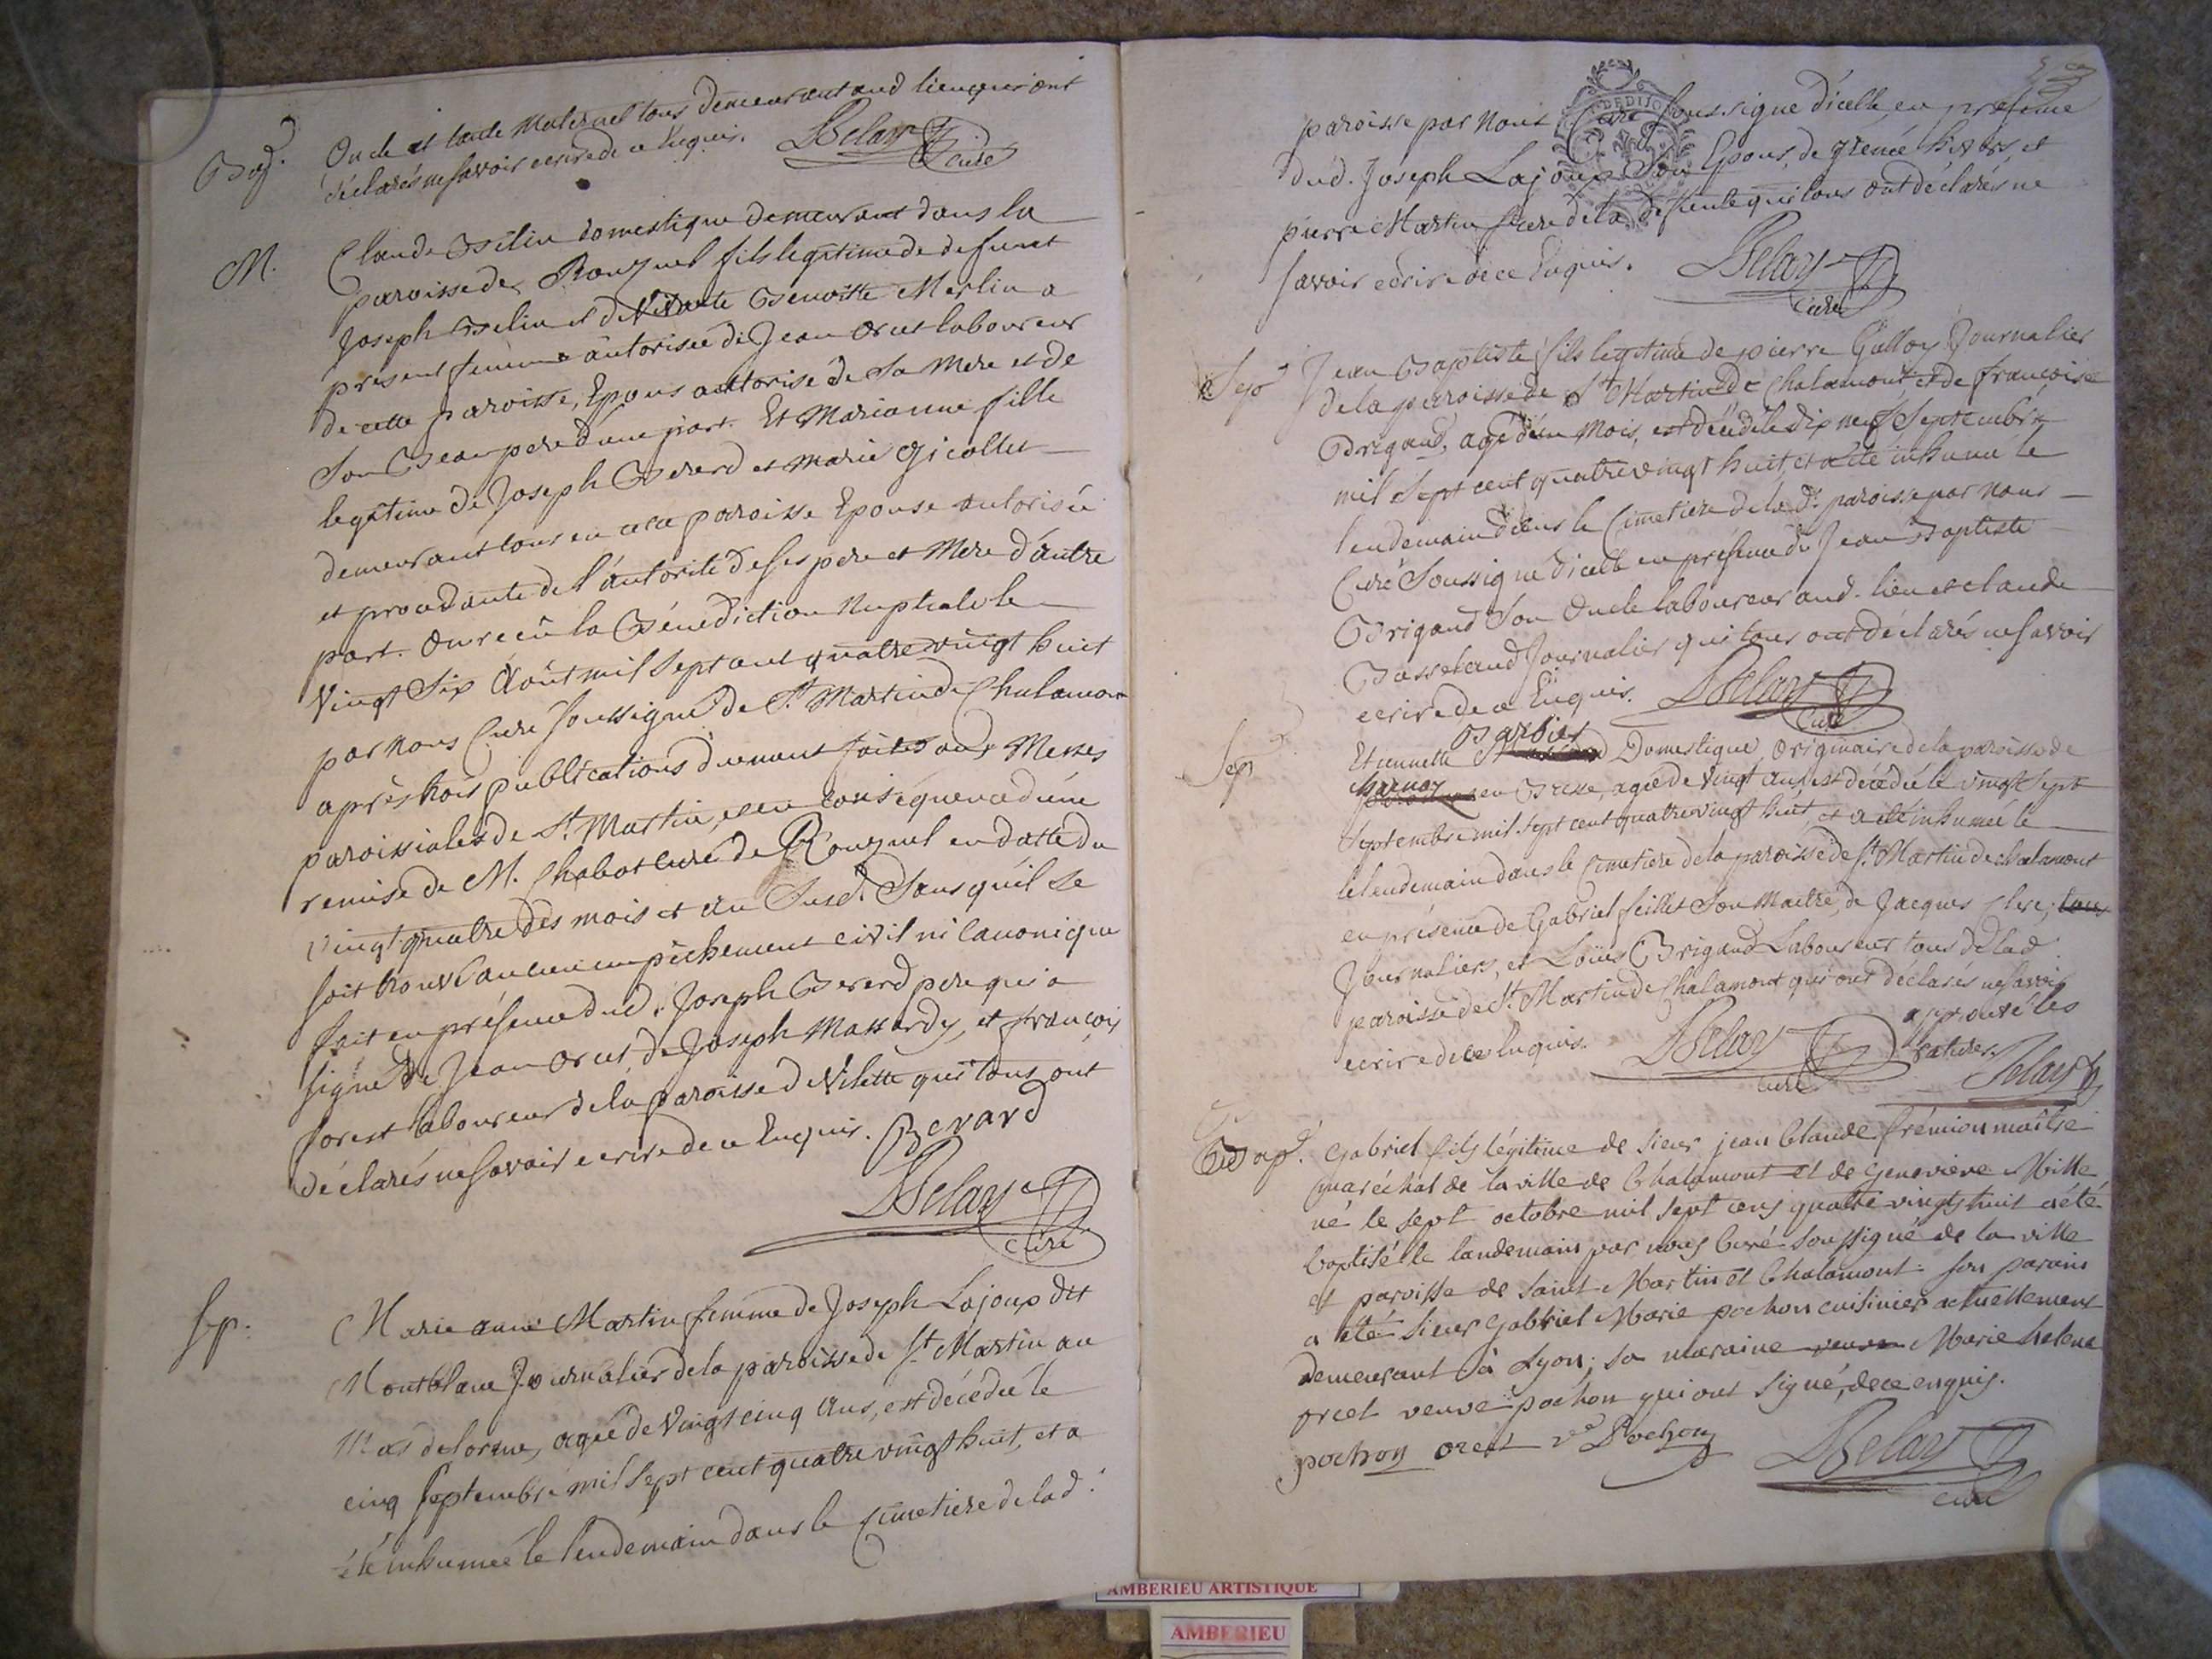 Bap.
Oncle et tante Maternel tous demeurant aud lieu qui ont
déclarés ne savoir ecrire de ce Enquis. Belay Curé
M.
Claude Belin domestique demeurant dans la
paroisse de Ronzuel fils legitime de defunt
Joseph Belin et de Vivante Benoitte Merlin a
present femme autorisée de Jean Orcet laboureur
de cette paroisse, Epoux authorisé de Sa Mere et de
Son Beau pere d'une part. Et Marianne fille
legitime de Joseph Bererd et marie Gicollet
demeurant tous en cete paroisse Epouse autorisée
et procedante de l'autorité de ses pere et Mere d'autre
part. Ont recû la Bénédiction Nuptiale le
Vingt Six Août mil Sept cent quatre vingt huit
par nous Curé Soussigné de St. Martin de Chalamont
après trois publications duement faites aux Messes
paroissiales de St. Martin, et en conséquence d'une
remise de M. Chabot curé de Ronzuel en datte du
vingt quatre des mois et an Susd. Sans qu'il se
soit trouvé aucun empêchement civil ni canonique
fait en présence dud. Joseph Bererd pere qui a
signé de Jean Orcet, de Joseph Massardy, et françois
forest laboureur de la paroisse de Vilette qui tous ont
déclarés ne Savoir ecrire de ce Enquis. Berard
Belay
Curé
Sep.
Marie anne Martin femme de Joseph Lajoup dit
Montblanc Journalier de la paroisse de St. Martin au
Mas delorme, agée de Vingt cinq Ans, est décedée le
cinq Septembre mil Sept cent quatre vingt huit, et a
été inhumée le lendemain dans le Cimetiere de lad.
paroisse par Nous Curé Sous signé d'icelle, en présence
dud. Joseph Lajoup Son Epoux, de et
pierre Martin frere de la defunte qui tous ont déclarés ne
savoir ecrire de ce Enquis. Belay
Curé
Sep.
Jean Baptiste fils legitime de pierre Gulloy Journalier
de la paroisse de St Martin de Chalamont et de françoise
Brigaud, agé d'un Mois, est décedé le dix neuf Septembre
mil Sept cent quatre vingt huit, et a été inhumé le
lendemain dans le Cimetiere de la d. paroisse par nous
Curé Soussigné d'icelle en présence de Jean Baptiste
Brigaud Son Oncle laboureur aud. lieu et claude
Basset aud Journalier qui tous ont déclarés ne savoir
ecrire de ce Enquis. Belay
Curé
Sep
Barbier
Etiennette Domestique, Originaire de la paroisse de
en Bresse, agée de Vingt ans, est décedée le vingt Sept
Septembre mil Sept cent quatre vingt huit, et a été inhumée le
le lendemain dans le Cimetiere de la paroisse de St. Martin de chalamont
en présence de Gabriel feillet Son Maitre, de Jacques Clerc, tous
Journaliers, et Louis Brigaud Laboureur tous de lad.
paroisse de St. Martin de Chalamont qui ont declarés ne savoir
ecrire de ce Enquis. Belay
Curé
approuvé les
ratures. Belay
Bap.
Gabriel fils légitime de sieur jean Claude frémion maitre
maréchal de la ville de Chalamont et de Genevieve Mille
né le sept octobre mil sept cens quatre vingts huit a été
baptisé le landemain par nous Curé Soussigné de la ville
et paroisse de Saint Martin et Chalamont: son parain
a été sieur Gabriel Marie pochon cuisinier actuellement
demeurant à Lyon; sa maraine veuve Marie helene
orcet veuve pochon qui ont signé, de ce enquis.
pochon orcet ve Pochon Belay
Curé
AMBERIEU ARTISTIQUE
AMBERIEU